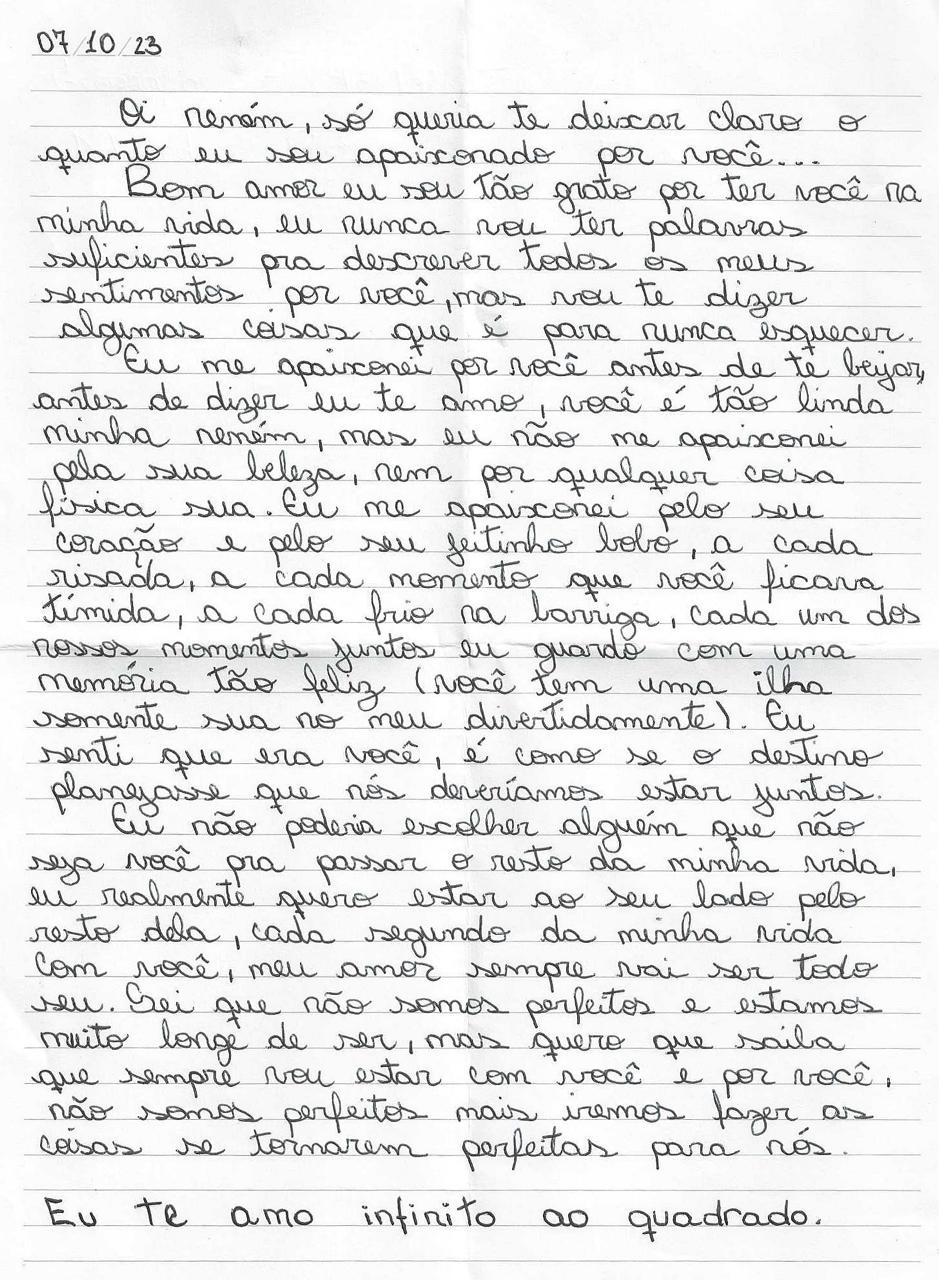 07/10/23
Oi neném, só queria te deixar claro o
quanto eu sou apaixonado por você...
Bom amor eu sou tão grato por ter você na
minha vida, eu nunca vou ter palavras
suficientes pra descrever todos os meus
sentimentos por você, mas vou te dizer
algumas coisas que é para nunca esquecer.
Eu me apaixonei por você antes de te beijar,
antes de dizer eu te amo, você é tão linda
minha neném, mas eu não me apaixonei
pela sua beleza, nem por qualquer coisa
física sua. Eu me apaixonei pelo seu
coração e pelo seu jeitinho bobo, a cada
risada, a cada momento que você ficava
tímida, a cada frio na barriga, cada um dos
nossos momentos juntos eu guardo com uma
memória tão feliz (você tem uma ilha
somente sua no meu divertidamente). Eu
senti que era você, é como se o destino
planejasse que nós deveríamos estar juntos.
Eu não poderia escolher alguém que não
seja você pra passar o resto da minha vida,
eu realmente quero estar ao seu lado pelo
resto dela, cada segundo da minha vida
com você, meu amor sempre vai ser todo
seu. Sei que não somos perfeitos e estamos
muito longe de ser, mas quero que saiba
que sempre vou estar com você e por você,
não somos perfeitos mais iremos fazer as
coisas se tornarem perfeitas para nós.
Eu te amo infinito ao quadrado.